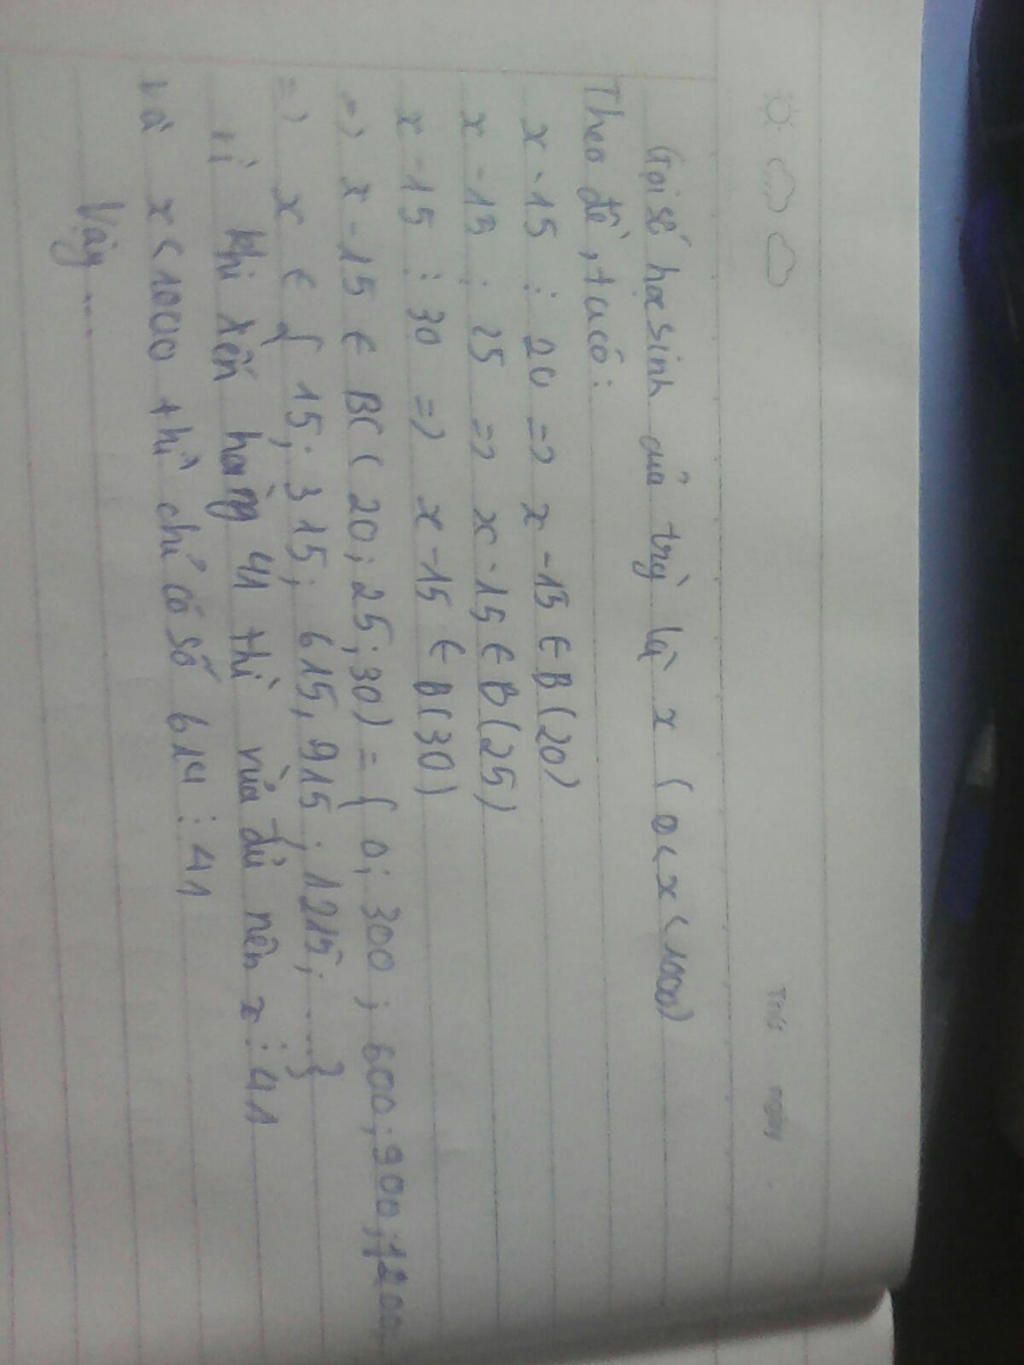 Thứ ngày
Gọi số học sinh của trg là x (0<x<1000)
Theo đề, ta có:
x-15 ⋮ 20 => x-15 ∈ B(20)
x-15 ⋮ 25 => x-15 ∈ B(25)
x-15 ⋮ 30 => x-15 ∈ B(30)
=> x-15 ∈ BC(20;25;30) = { 0; 300; 600; 900; 1200;
=> x ∈ { 15; 315; 615; 915; 1215; ....}
Vì khi xến hàng 41 thì vừa đủ nên x ⋮ 41
và x<1000 thì chỉ có số 614 ⋮ 41
Vậy ...